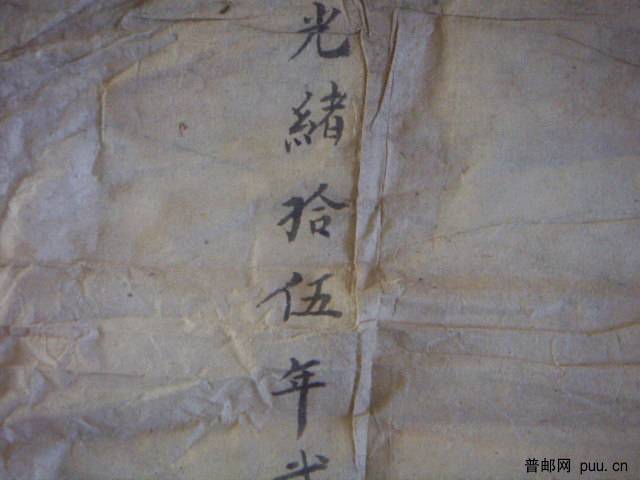 光緒拾伍年
普邮网 puu.cn